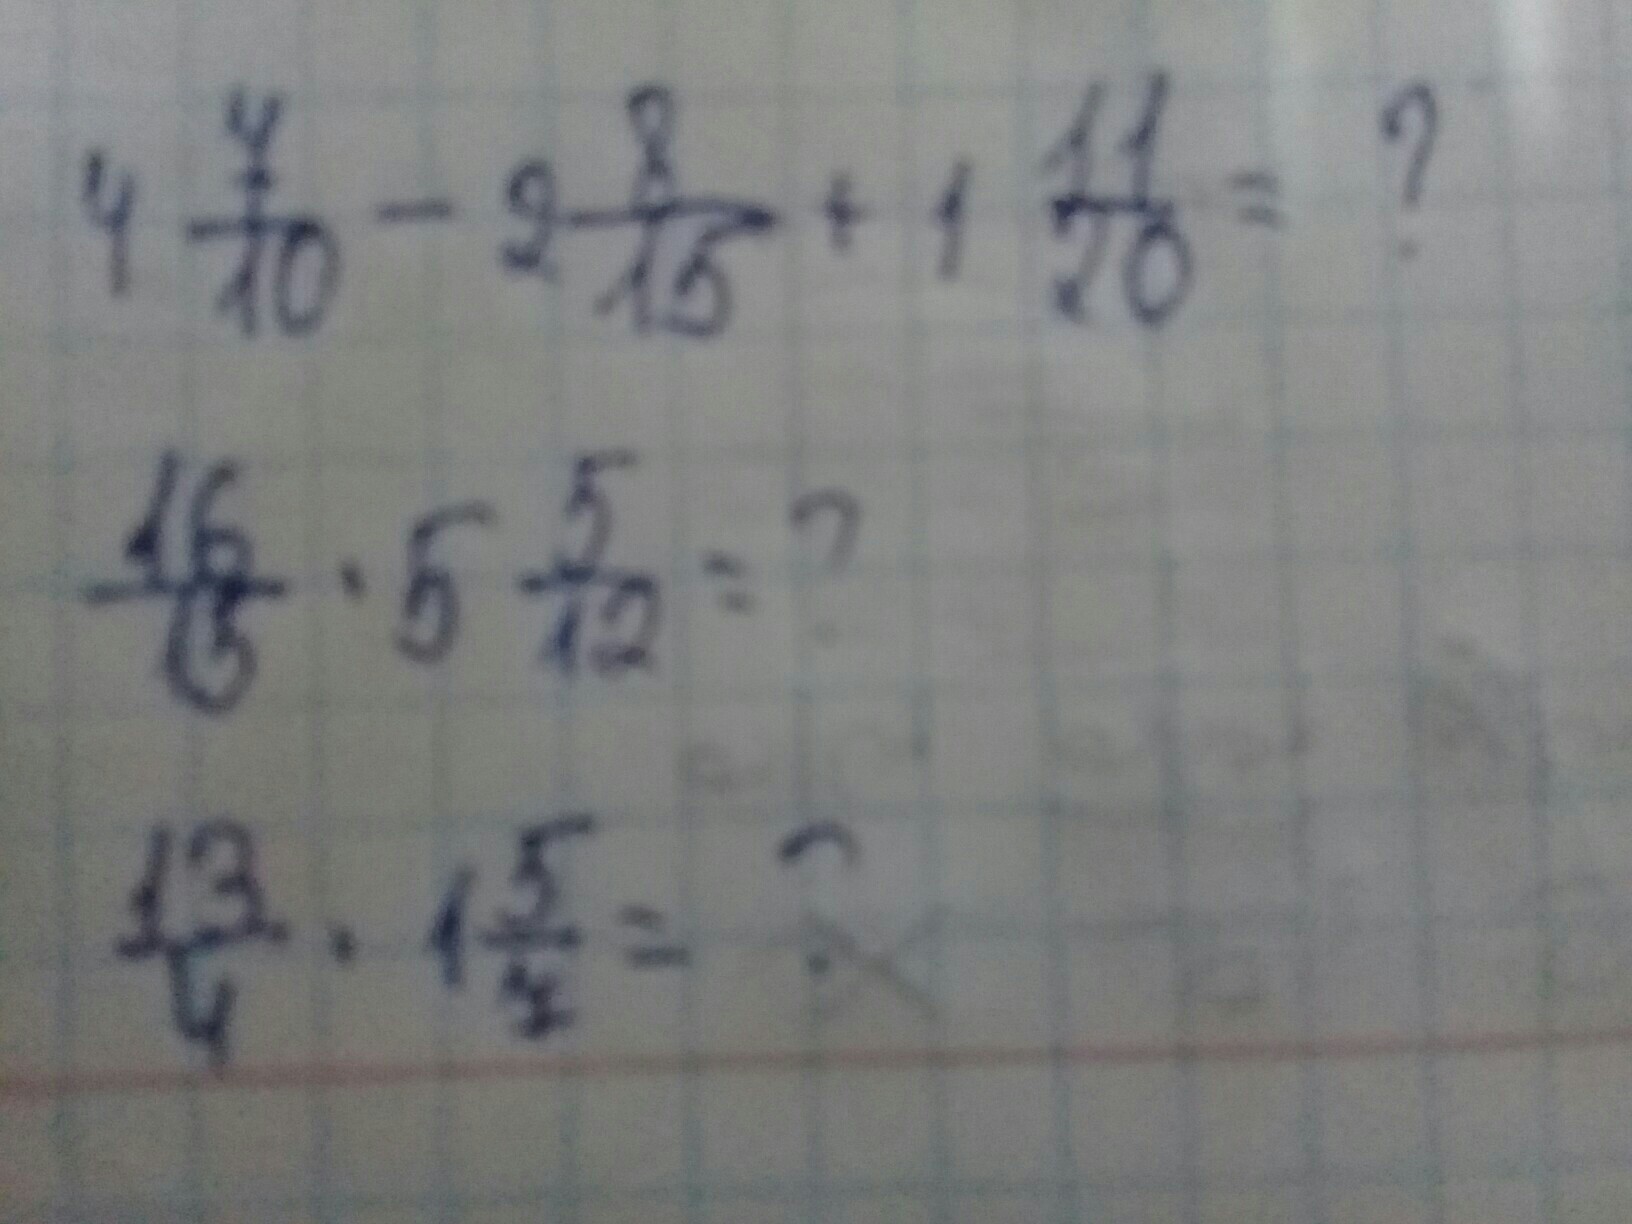 4 7/10 - 2 8/15 + 1 11/20 = ?
16/15 · 5 5/12 = ?
13/4 · 1 5/7 = ?